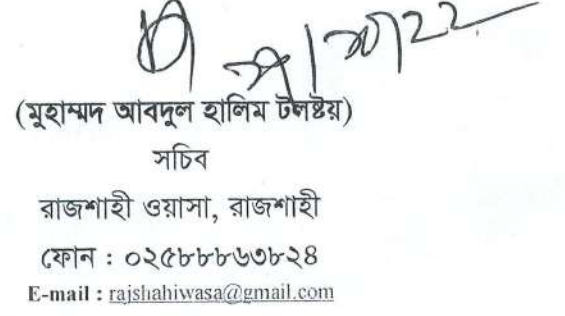 (মুহাম্মদ আবদুল হালিম টলষ্টয়)
সচিব
রাজশাহী ওয়াসা, রাজশাহী
ফোন : ০২৫৮৮৮৬৩৮২৪
E-mail : rajshahiwasa@gmail.com